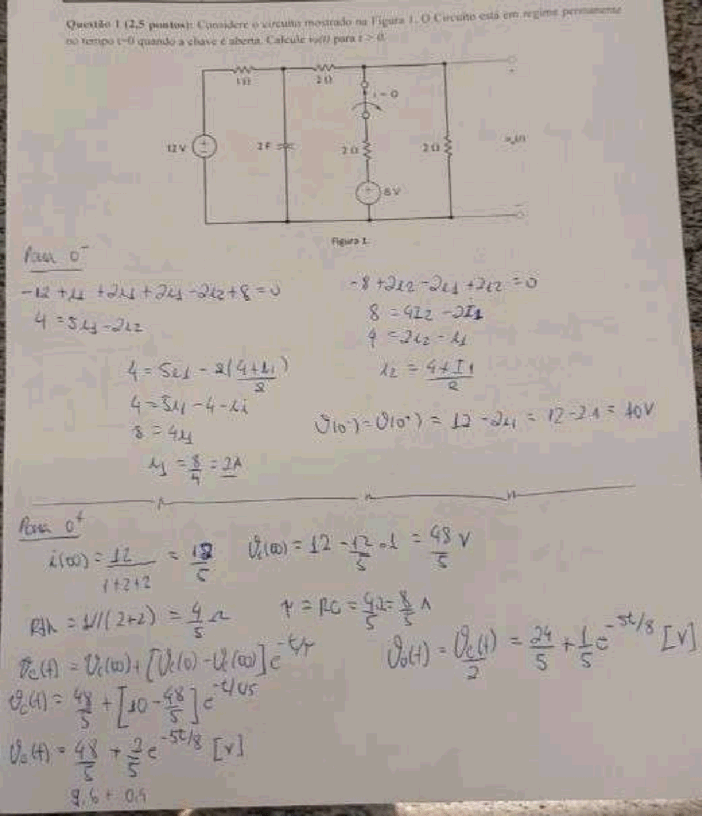 Questão 1 (2,5 pontos): Considere o circuito mostrado na Figura 1. O Circuito está em regime permanente
no tempo t=0 quando a chave é aberta. Calcule v₀(t) para t > 0.
1Ω
2Ω
t = 0
12 V
2F
2Ω
2Ω
v₀(t)
8 V
+
-
Figura 1.
Para 0⁻
-12 + i1 + 2i1 + 2i1 - 2i2 + 8 = 0
4 = 5i1 - 2i2
-8 + 2i2 - 2i1 + 2i2 = 0
8 = 4I2 - 2I1
4 = 2i2 - i1
i2 = (4 + I1)/2
4 = 5i1 - 2(4 + i1)/2
4 = 5i1 - 4 - i1
8 = 4i1
i1 = 8/4 = 2A
V(0⁻) = V(0⁺) = 12 - 2·1 = 10V
Para 0⁺
i(∞) = 12/(1+2+2) = 12/5
Vc(∞) = 12 - 12/5 · 1 = 48/5 V
Rth = 1//(2+2) = 4/5 Ω
τ = RC = 4/5 · 2 = 8/5 s
Vc(t) = Vc(∞) + [Vc(0) - Vc(∞)] e^(-t/τ)
V₀(t) = Vc(t)/2 = 24/5 + 1/5 e^(-5t/8) [V]
Vc(t) = 48/5 + [10 - 48/5] e
V₀(t) = 48/5 + 2/5 e^(-5t/8) [V]
9,6 + 0,4